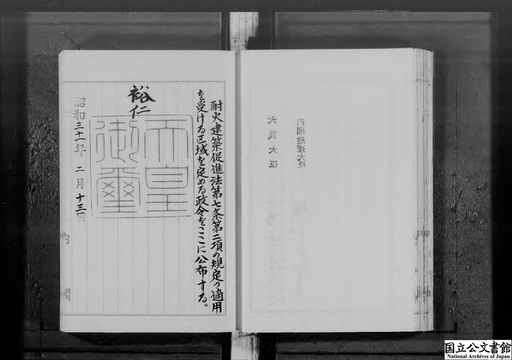 耐火建築促進法第七条第二項の規定の適用
を受ける区域を定める政令をここに公布する。
裕仁
天皇御璽
昭和三十一年 二月 十三日
内閣
内閣総理大臣
大蔵大臣
国立公文書館
National Archives of Japan